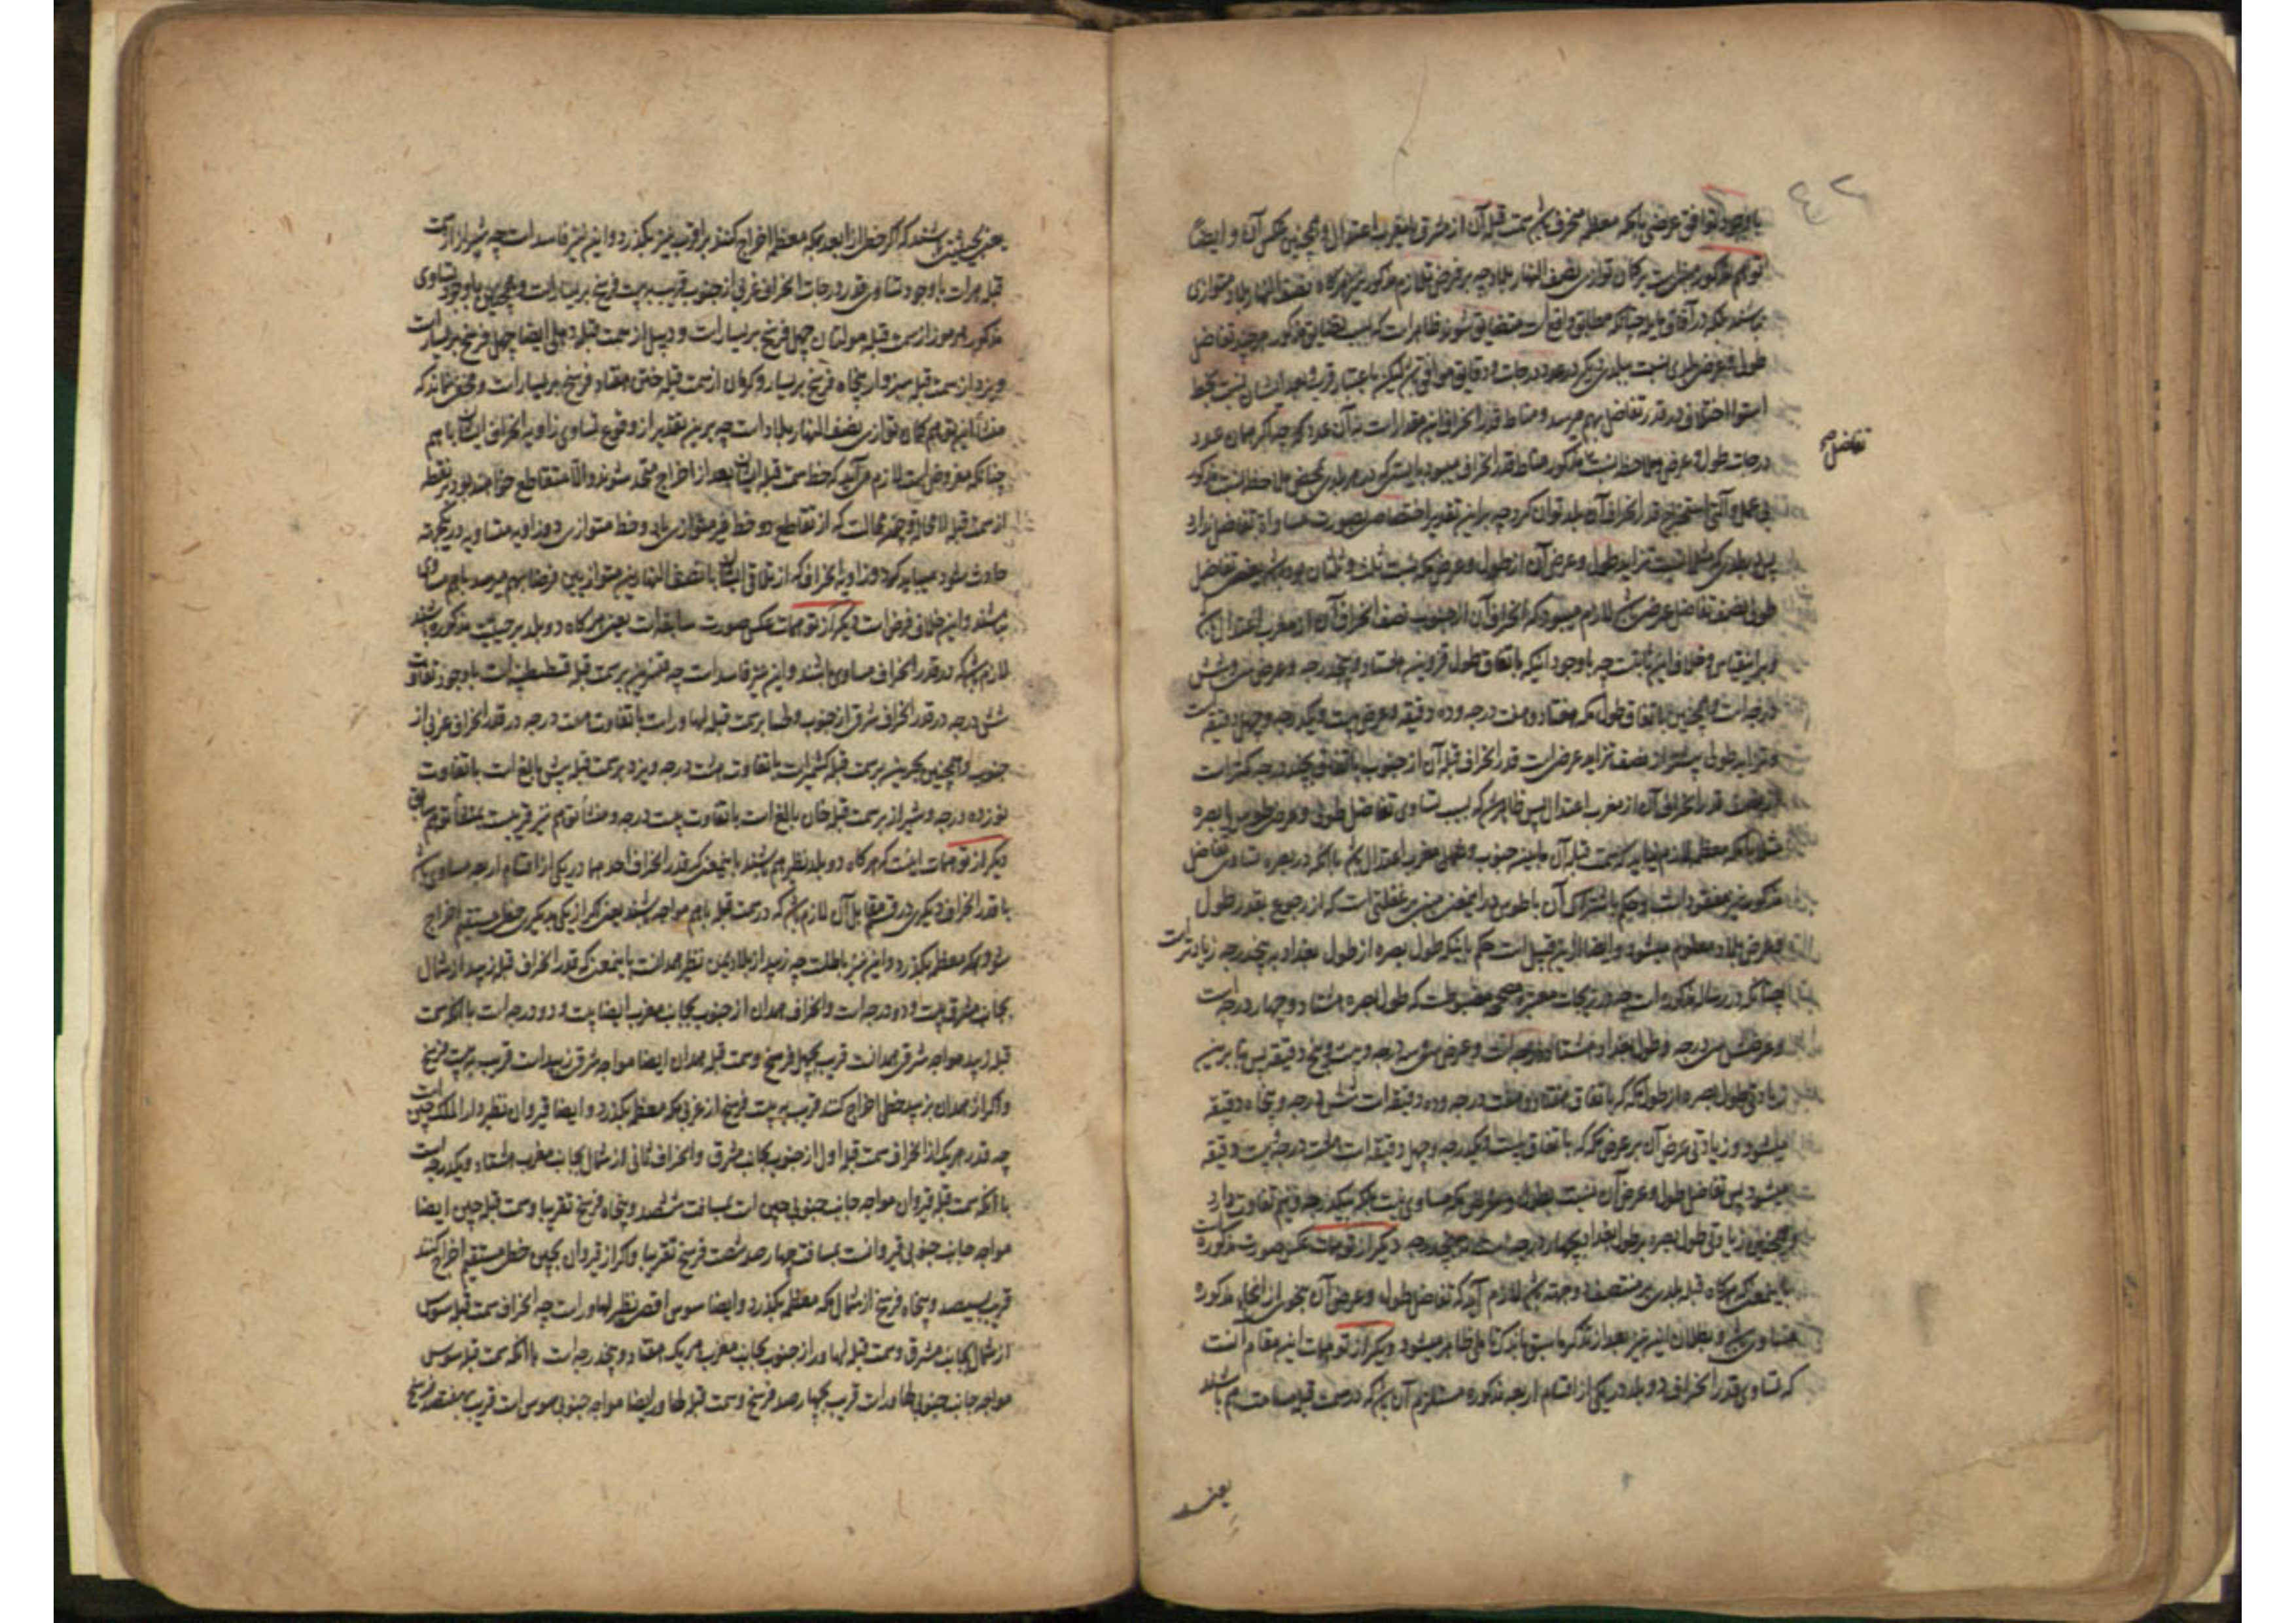 ٤٢
با وجود توافق عرضی با مکه معظمه منحرف باشد سمت قبله آن از مشرق یا مغرب اعتدال و همچنین عکس آن و ایضا
توهم مذکور مبنی است بر کمان توازی نصف النهار بلاد چه بر فرض تلازم مذکور نیز هرگاه نصف النهار بلاد متوازی
نباشند بلکه در آفاق مایله چنانکه مطابق واقع است متضایق شوند ظاهر است که بسبب تضایق مذکور هر چند تفاضل
طول و عرض بلدی نسبت ببلدی دیگر در عدد درجات و دقایق موافق باشد لیکن باعتبار قرب و بعد ایشان نسبت بخط
استوا اختلافی در قدر تفاضل بهم میرسد و مناط قدر انحراف این مقدار است نه آن عدد که چه اگر همان عدد
تفاضل صح
درجات طول و عرض بملاحظه نسبت مذکور مناط قدر انحراف میبود بایستی که در هر بلدی بمحض ملاحظه نسبت مذکور
بی عمل و آلتی استخراج قدر انحراف آن بلد توان کرد چه بر این تقدیر اختصاص بصورت مساواة تفاضل ندارد
طول نصف تفاضل عرض باشد لازم میبود که انحراف آن از جنوب نصف انحراف آن از مغرب اعتدال باشد
و بر این قیاس و خلاف این ثابت چه با وجود اینکه باتفاق طول قزوین هشتاد و پنج درجه و عرض سی و شش
درجه است و همچنین باتفاق طول مکه هفتاد و هفت درجه و ده دقیقه و عرض بیست و یکدرجه و چهل دقیقه است
و تزاید طول بیشتر از نصف تزاید عرض است قدر انحراف قبله آن از جنوب باتفاق پنجدرجه کمتر است
از نصف قدر انحراف آن از مغرب اعتدال پس ظاهر شد که بسبب تساوی تفاضل طول و عرض طوس یا بصره
مثلا با مکه معظمه لازم نمیاید که سمت قبله آن مابین جنوب و مغرب اعتدال باشد با آنکه در بصره تساوی تفاضل
مذکور نیز مفقود است و حکم باشتراک آن با طوس در اینمعنی مبنی بر غفلتی است که از رجوع بقدر طول
و عرض بلاد معلوم میشود و ایضا از این قبیل است حکم باینکه طول بصره از طول بغداد بر پنجدرجه زیادتر است
چنانکه در رساله مذکور است چه در زیجات معتبره صحیحه مضبوطست که طول بصره هشتاد و چهار درجه است
و عرضش سی درجه و طول بغداد هشتاد درجه است و عرض سی و سه درجه و بیست و پنج دقیقه پس بنا بر این
زیادتی طول بصره از طول مکه که باتفاق هفتاد و هفت درجه و ده دقیقه است شش درجه و پنجاه دقیقه
میشود و زیادتی عرض آن بر عرض مکه که باتفاق بیست و یکدرجه و چهل دقیقه است هشت درجه بیست دقیقه
میشود پس تفاضل طول و عرض آن نسبت بطول و عرض مکه مساوی نیست بلکه بیکدرجه و نیم تفاوت دارد
و همچنین زیادتی طول بصره بر طول بغداد بچهار درجه است نه پنجدرجه دیگر از توهمات عکس صورت مذکوره است
باینمعنی که هرگاه قبله بلدی بر منتصف دو جهة باشد لازم آید که تفاضل طول و عرض آن بنحوی از انحاء مذکوره
مساوی باشد و بطلان این نیز بعد از تذکر ما سبق باندک تاملی ظاهر میشود دیگر از توهمات این مقام آنست
که تساوی قدر انحراف دو بلد در یکی از اقسام اربعه مذکوره مستلزم آن باشد که در سمت قبله مسامت هم باشند
یعنی
یعنی بحیثیتی باشند که اگر خطی از ابعد بمکه معظمه اخراج کنند بر اقرب نیز بگذرد و این نیز فاسد است چه شیراز از سمت
قبله هرات با وجود تساوی قدر درجات انحراف غربی از جنوب قریب ببیست فرسخ بر یسار است و همچنین با وجود تساوی
مذکور هرموز از سمت قبله مولتان چهل فرسخ بر یسار است و دیبل از سمت قبله دهلی ایضا چهل فرسخ بر یسار است
و یزد از سمت قبله سبزوار پنجاه فرسخ بر یسار و کرمان از سمت قبله ختن هفتاد فرسخ بر یسار است و مخفی نماند که
منشأ این توهم کمان توازی نصف النهار بلاد است چه بر این تقدیر از وقوع تساوی زاویه انحراف ایشان با هم
چنانکه مفروض است لازم می آید که خط سمت قبله ایشان بعد از اخراج متحد شوند والا متقاطع خواهند بود بر نقطه
از سمت قبله لامحاله و حینئذ محالست که از تقاطع دو خط غیر متوازی با دو خط متوازی دو زاویه متساویه در یکجهته
حادث شود میباید که دو زاویه انحراف که از تلاقی ایشان با نصف النهارین متوازیین فرضا بهم میرسد با هم مساوی
نباشند و این خلاف فرض است دیگر از توهمات عکس صورت سابقه است یعنی هرگاه دو بلد بر حیثیت مذکوره باشند
لازم باشد که در قدر انحراف مساوی باشند و این نیز فاسد است چه تفلیس بر سمت قبله قسطنطنیه است با وجود تفاوت
شش درجه در قدر انحراف شرقی از جنوب و طسا بر سمت قبله لهاور است با تفاوت هفت درجه در قدر انحراف غربی از
جنوب و همچنین بحرین بر سمت قبله کشمیر است با تفاوت هشت درجه و یزد بر سمت قبله بیش بالغ است با تفاوت
نوزده درجه و شیراز بر سمت قبله خان بالغ است با تفاوت بیست درجه و منشأ توهم نیز قریبست بمنشأ توهم سابق
دیگر از توهمات اینست که هرگاه دو بلد نظیر هم باشند باینمعنی که قدر انحراف احدهما در یکی از اقسام اربعه مساوی باشد
با قدر انحراف دیگری در قسم مقابل آن لازم باشد که در سمت قبله با هم مواجه باشند یعنی اگر از یکی بدیگری خطی مستقیم اخراج
شود بمکه معظمه بگذرد و این نیز باطلست چه زبید از بلاد یمن نظیر همدانست باینمعنی که قدر انحراف قبله زبید از شمال
بجانب مشرق بیست و دو درجه است و انحراف همدان از جنوب بجانب مغرب ایضا بیست و دو درجه است با آنکه سمت
قبله زبید مواجه شرقی همدانست قریب بچهل فرسخ و سمت قبله همدان ایضا مواجه شرقی زبید است قریب ببیست فرسخ
و اگر از همدان بزبید خطی اخراج کنند قریب ببیست فرسخ از غربی مکه معظمه بگذرد و ایضا قیروان نظیر دار الملک چین است
چه قدر هر یک از انحراف سمت قبله اول از جنوب بجانب مشرق و انحراف ثانی از شمال بجانب مغرب هشتاد و یکدرجه است
با آنکه سمت قبله قیروان مواجه جانب جنوبی چین است بمسافت ششصد و پنجاه فرسخ تقریبا و سمت قبله چین ایضا
مواجه جانب جنوبی قیروانست بمسافت چهار صد و شصت فرسخ تقریبا و اگر از قیروان بچین خطی مستقیم اخراج کنند
قریب بسیصد و پنجاه فرسخ از شمال مکه معظمه بگذرد و ایضا سوس اقصی نظیر لهاور است چه انحراف سمت قبله سوس
از شمال بجانب مشرق و سمت قبله لهاور از جنوب بجانب مغرب هر یک هفتاد و پنجدرجه است با آنکه سمت قبله سوس
مواجه جانب جنوبی لهاور است قریب بچهار صد فرسخ و سمت قبله لهاور ایضا مواجه جنوبی سوس است قریب بهفتصد فرسخ